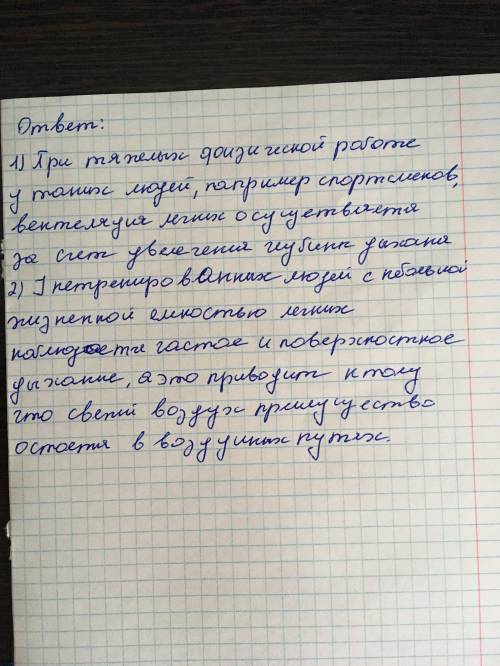 Ответ:
1) При тяжелых физической работе
у таких людей, например спортсменов,
вентеляция легких осуществается
за счет увелечения глубины дыхана
2) У нетренированных людей с небольной
жизненной емкостью легких
наблюдается частое и поверхностное
дыхание, а это приводит к тому
что свежий воздух приемущество
остается в воздушных путях.